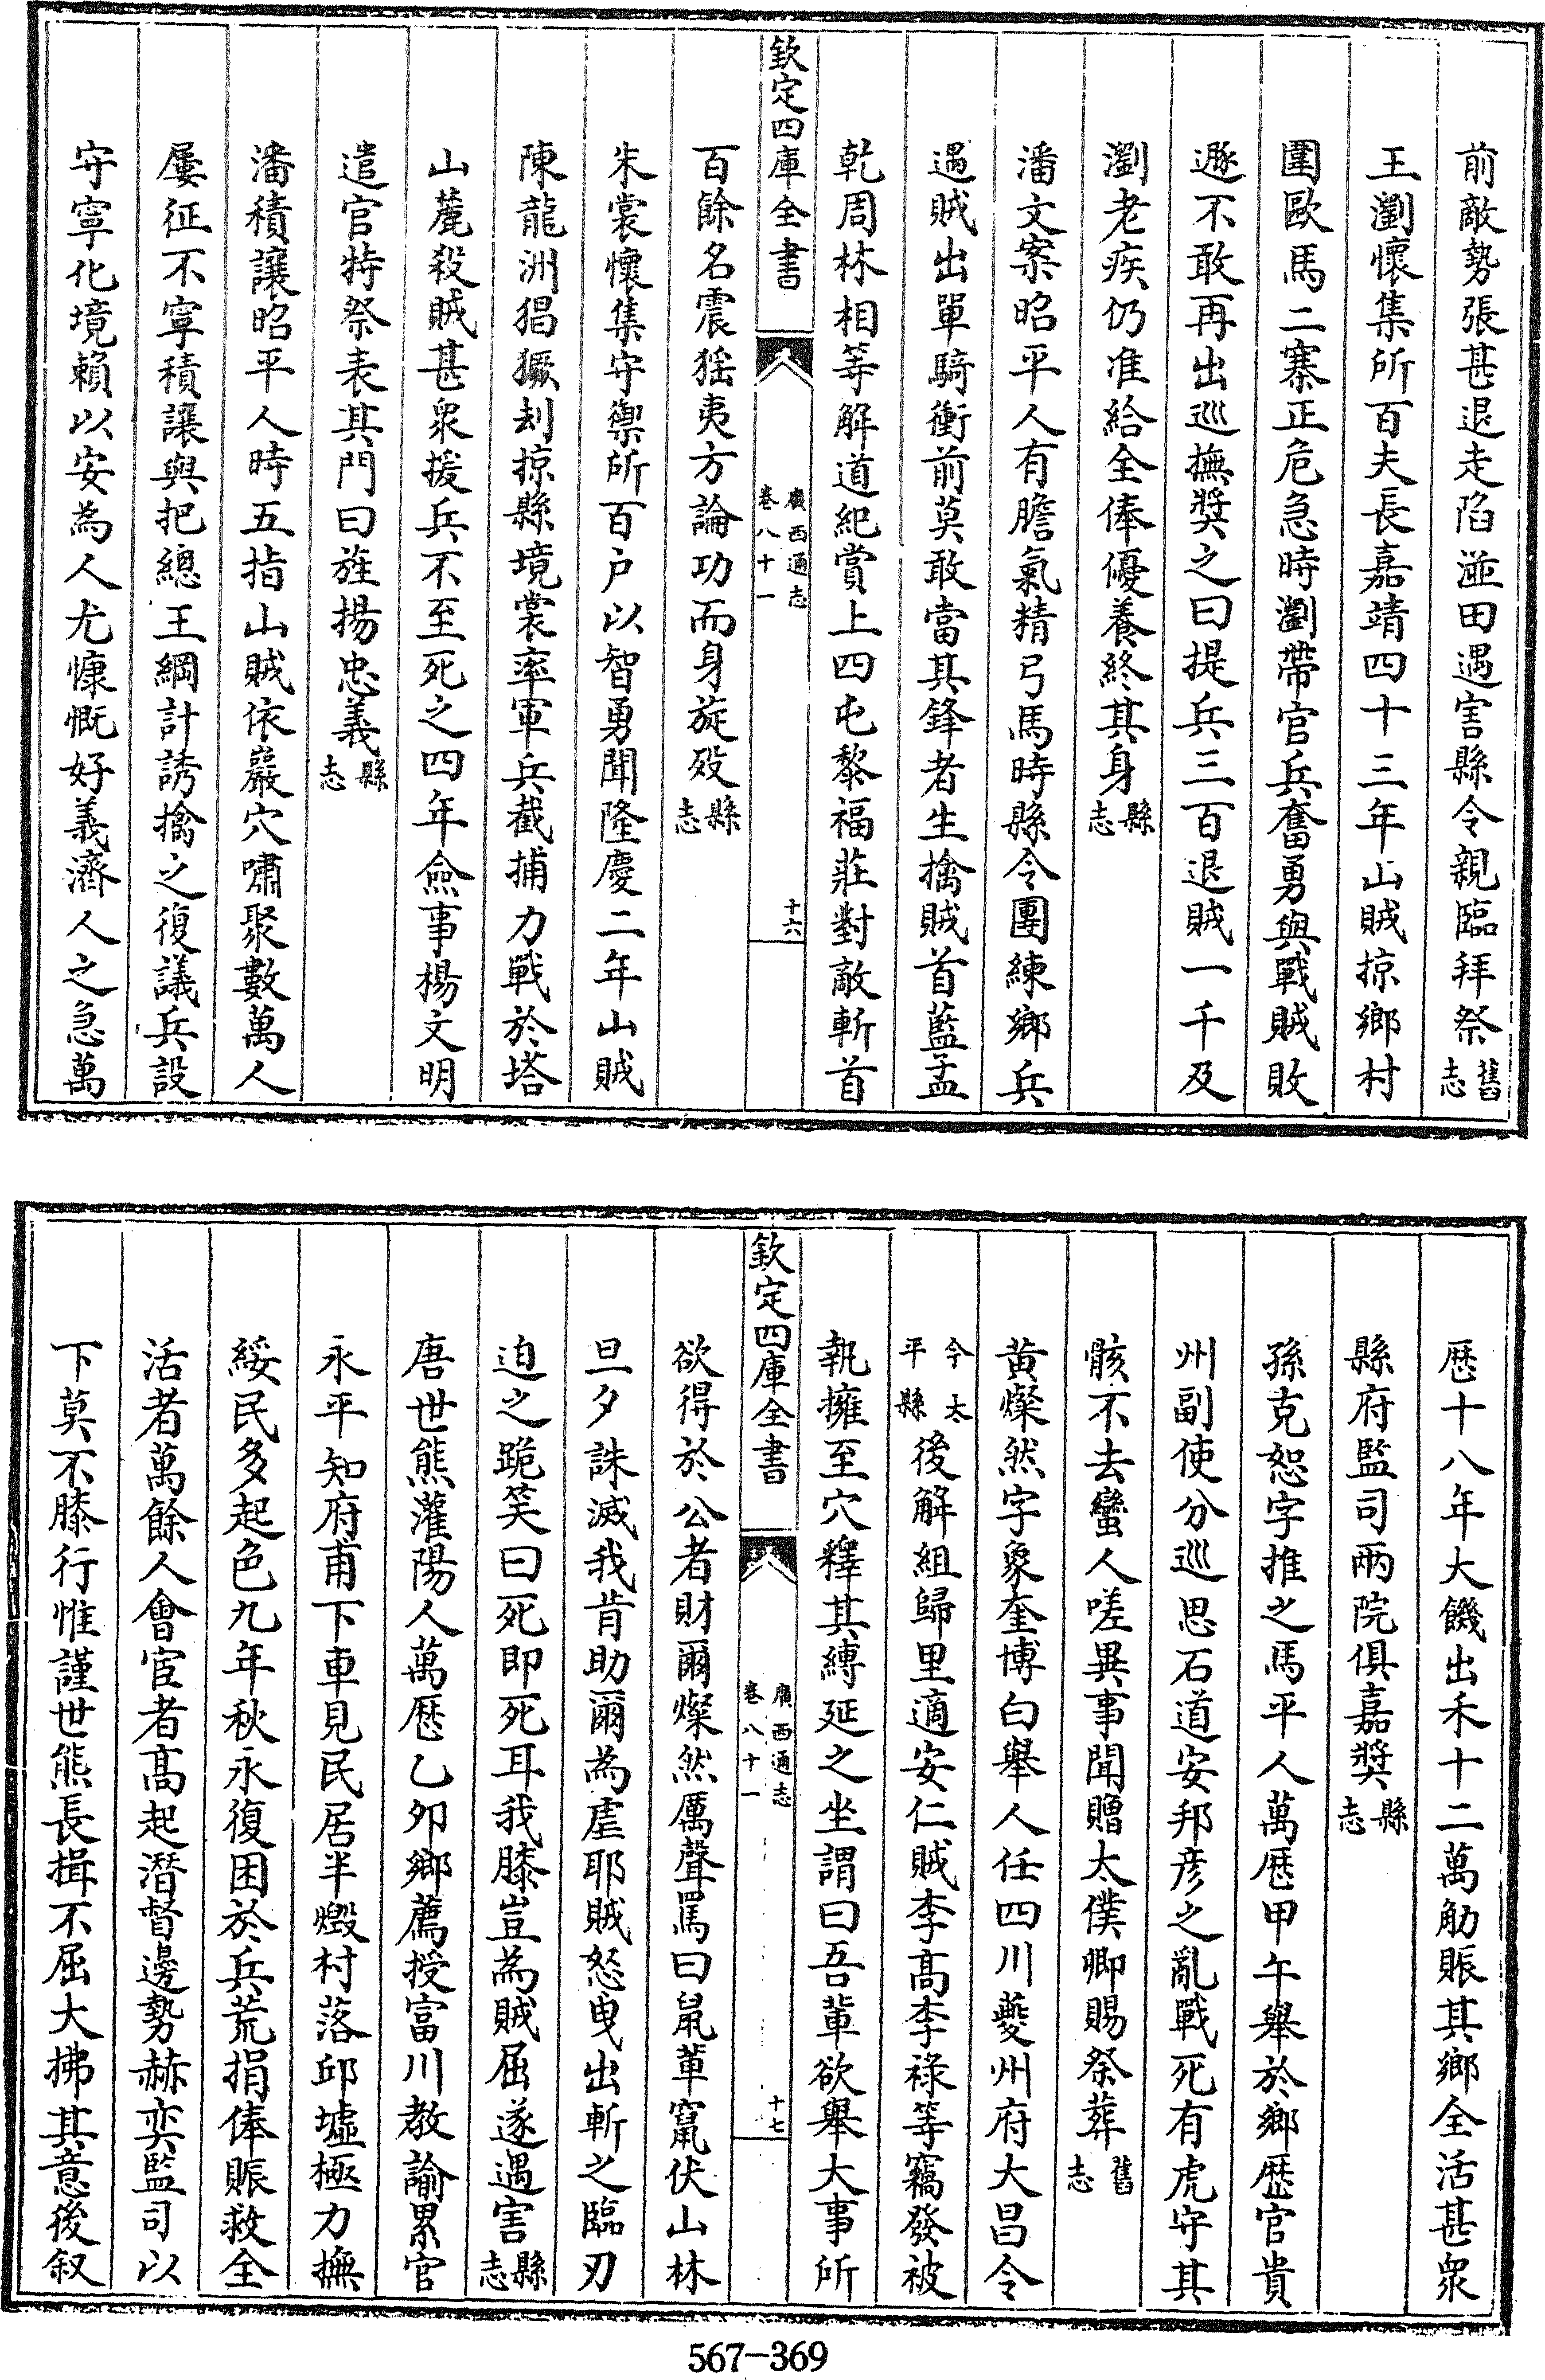 前敵勢張甚退走陷湴田遇害縣令親臨拜祭舊志
王瀏懷集所百夫長嘉靖四十三年山賊掠鄉村
圍歐馬二寨正危急時瀏帶官兵奮勇與戰賊敗
遯不敢再出巡撫奬之曰提兵三百退賊一千及
瀏老疾仍准給全俸優養終其身縣志
潘文案昭平人有膽氣精弓馬時縣令團練鄉兵
遇賊出單騎衝前莫敢當其鋒者生擒賊首藍孟
乾周林相等解道紀賞上四屯黎福莊對敵斬首
欽定四庫全書
廣西通志
卷八十一
十六
百餘名震猺夷方論功而身旋歿縣志
朱裳懷集守禦所百户以智勇聞隆慶二年山賊
陳龍洲猖獗刦掠縣境裳率軍兵截捕力戰於塔
山麓殺賊甚衆援兵不至死之四年僉事楊文明
遣官特祭表其門曰旌揚忠義縣志
潘積讓昭平人時五指山賊依巖穴嘯聚數萬人
屢征不寧積讓與把總王綱計誘擒之復議兵設
守寧化境賴以安為人尤慷慨好義濟人之急萬
厯十八年大饑出禾十二萬觔賬其鄉全活甚衆
縣府監司兩院俱嘉奬縣志
孫克恕字推之馬平人萬厯甲午舉於鄉歷官貴
州副使分巡思石道安邦彦之亂戰死有虎守其
骸不去蠻人嗟異事聞贈太僕卿賜祭葬舊志
黃燦然字象奎博白舉人任四川夔州府大昌令
今太平縣後解組歸里適安仁賊李高李祿等竊發被
執擁至穴釋其縛延之坐謂曰吾輩欲舉大事所
欽定四庫全書
廣西通志
卷八十一
十七
欲得於公者財爾燦然厲聲罵曰鼠輩竄伏山林
旦夕誅滅我肯助爾為虐耶賊怒曳出斬之臨刃
迫之跪笑曰死即死耳我膝豈為賊屈遂遇害縣志
唐世熊灌陽人萬厯乙夘鄉薦授富川教諭累官
永平知府甫下車見民居半燬村落邱墟極力撫
綏民多起色九年秋永復困於兵荒捐俸賑救全
活者萬餘人會宦者高起潛督邊勢赫奕監司以
下莫不膝行惟謹世熊長揖不屈大拂其意後叙
567-369